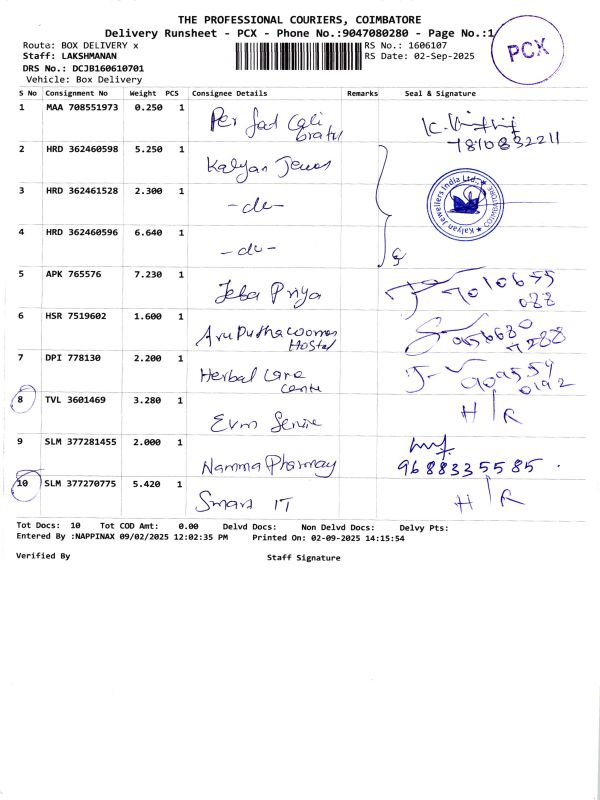 THE PROFESSIONAL COURIERS, COIMBATORE
Delivery Runsheet - PCX - Phone No.:9047080280 - Page No.:1
PCX
Route: BOX DELIVERY x
RS No.: 1606107
Staff: LAKSHMANAN
RS Date: 02-Sep-2025
DRS No.: DCJB160610701
Vehicle: Box Delivery
S No Consignment No Weight PCS Consignee Details Remarks Seal & Signature
1 MAA 708551973 0.250 1 Per fact Cali
7810832211
2 HRD 362460598 5.250 1 Kalyan Jewes
3 HRD 362461528 2.300 1 -do-
Kalyan Jewellers India Ltd.
4 HRD 362460596 6.640 1 -do-
5 APK 765576 7.230 1 Jeba Priya
6 HSR 7519602 1.600 1
Hostel
7 DPI 778130 2.200 1 Herbal Care
8 TVL 3601469 3.280 1 Evm H/R
9 SLM 377281455 2.000 1 Namma Pharmay 9688335585
10 SLM 377270775 5.420 1 Smart IT H/R
Tot Docs: 10 Tot COD Amt: 0.00 Delvd Docs: Non Delvd Docs: Delvy Pts:
Entered By :NAPPINAX 09/02/2025 12:02:35 PM Printed On: 02-09-2025 14:15:54
Verified By Staff Signature